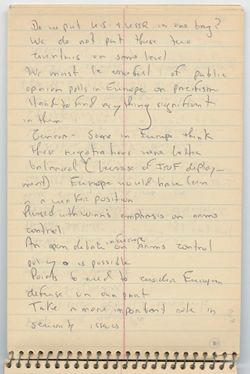 Do we put US & USSR in one bag?
We do not put these two
countries on same level
We must be careful of public
opinion polls in Europe on pacifism
Hard to find anything significant
in them
Some in Europe think
these negotiations were better
balanced (because of INF deploy-
ment) Europe would have been
in a weaker position
emphasis on arms
control
An open debate in Europe on arms control
policy is possible
Points to need to consider European
defense
Take a more important role in
security issues